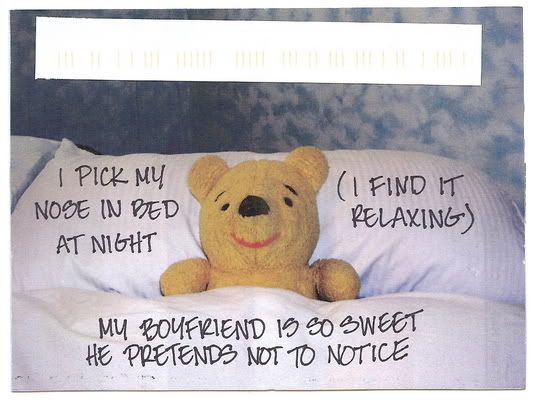 I PICK MY
NOSE IN BED
AT NIGHT
(I FIND IT
RELAXING)
MY BOYFRIEND IS SO SWEET
HE PRETENDS NOT TO NOTICE